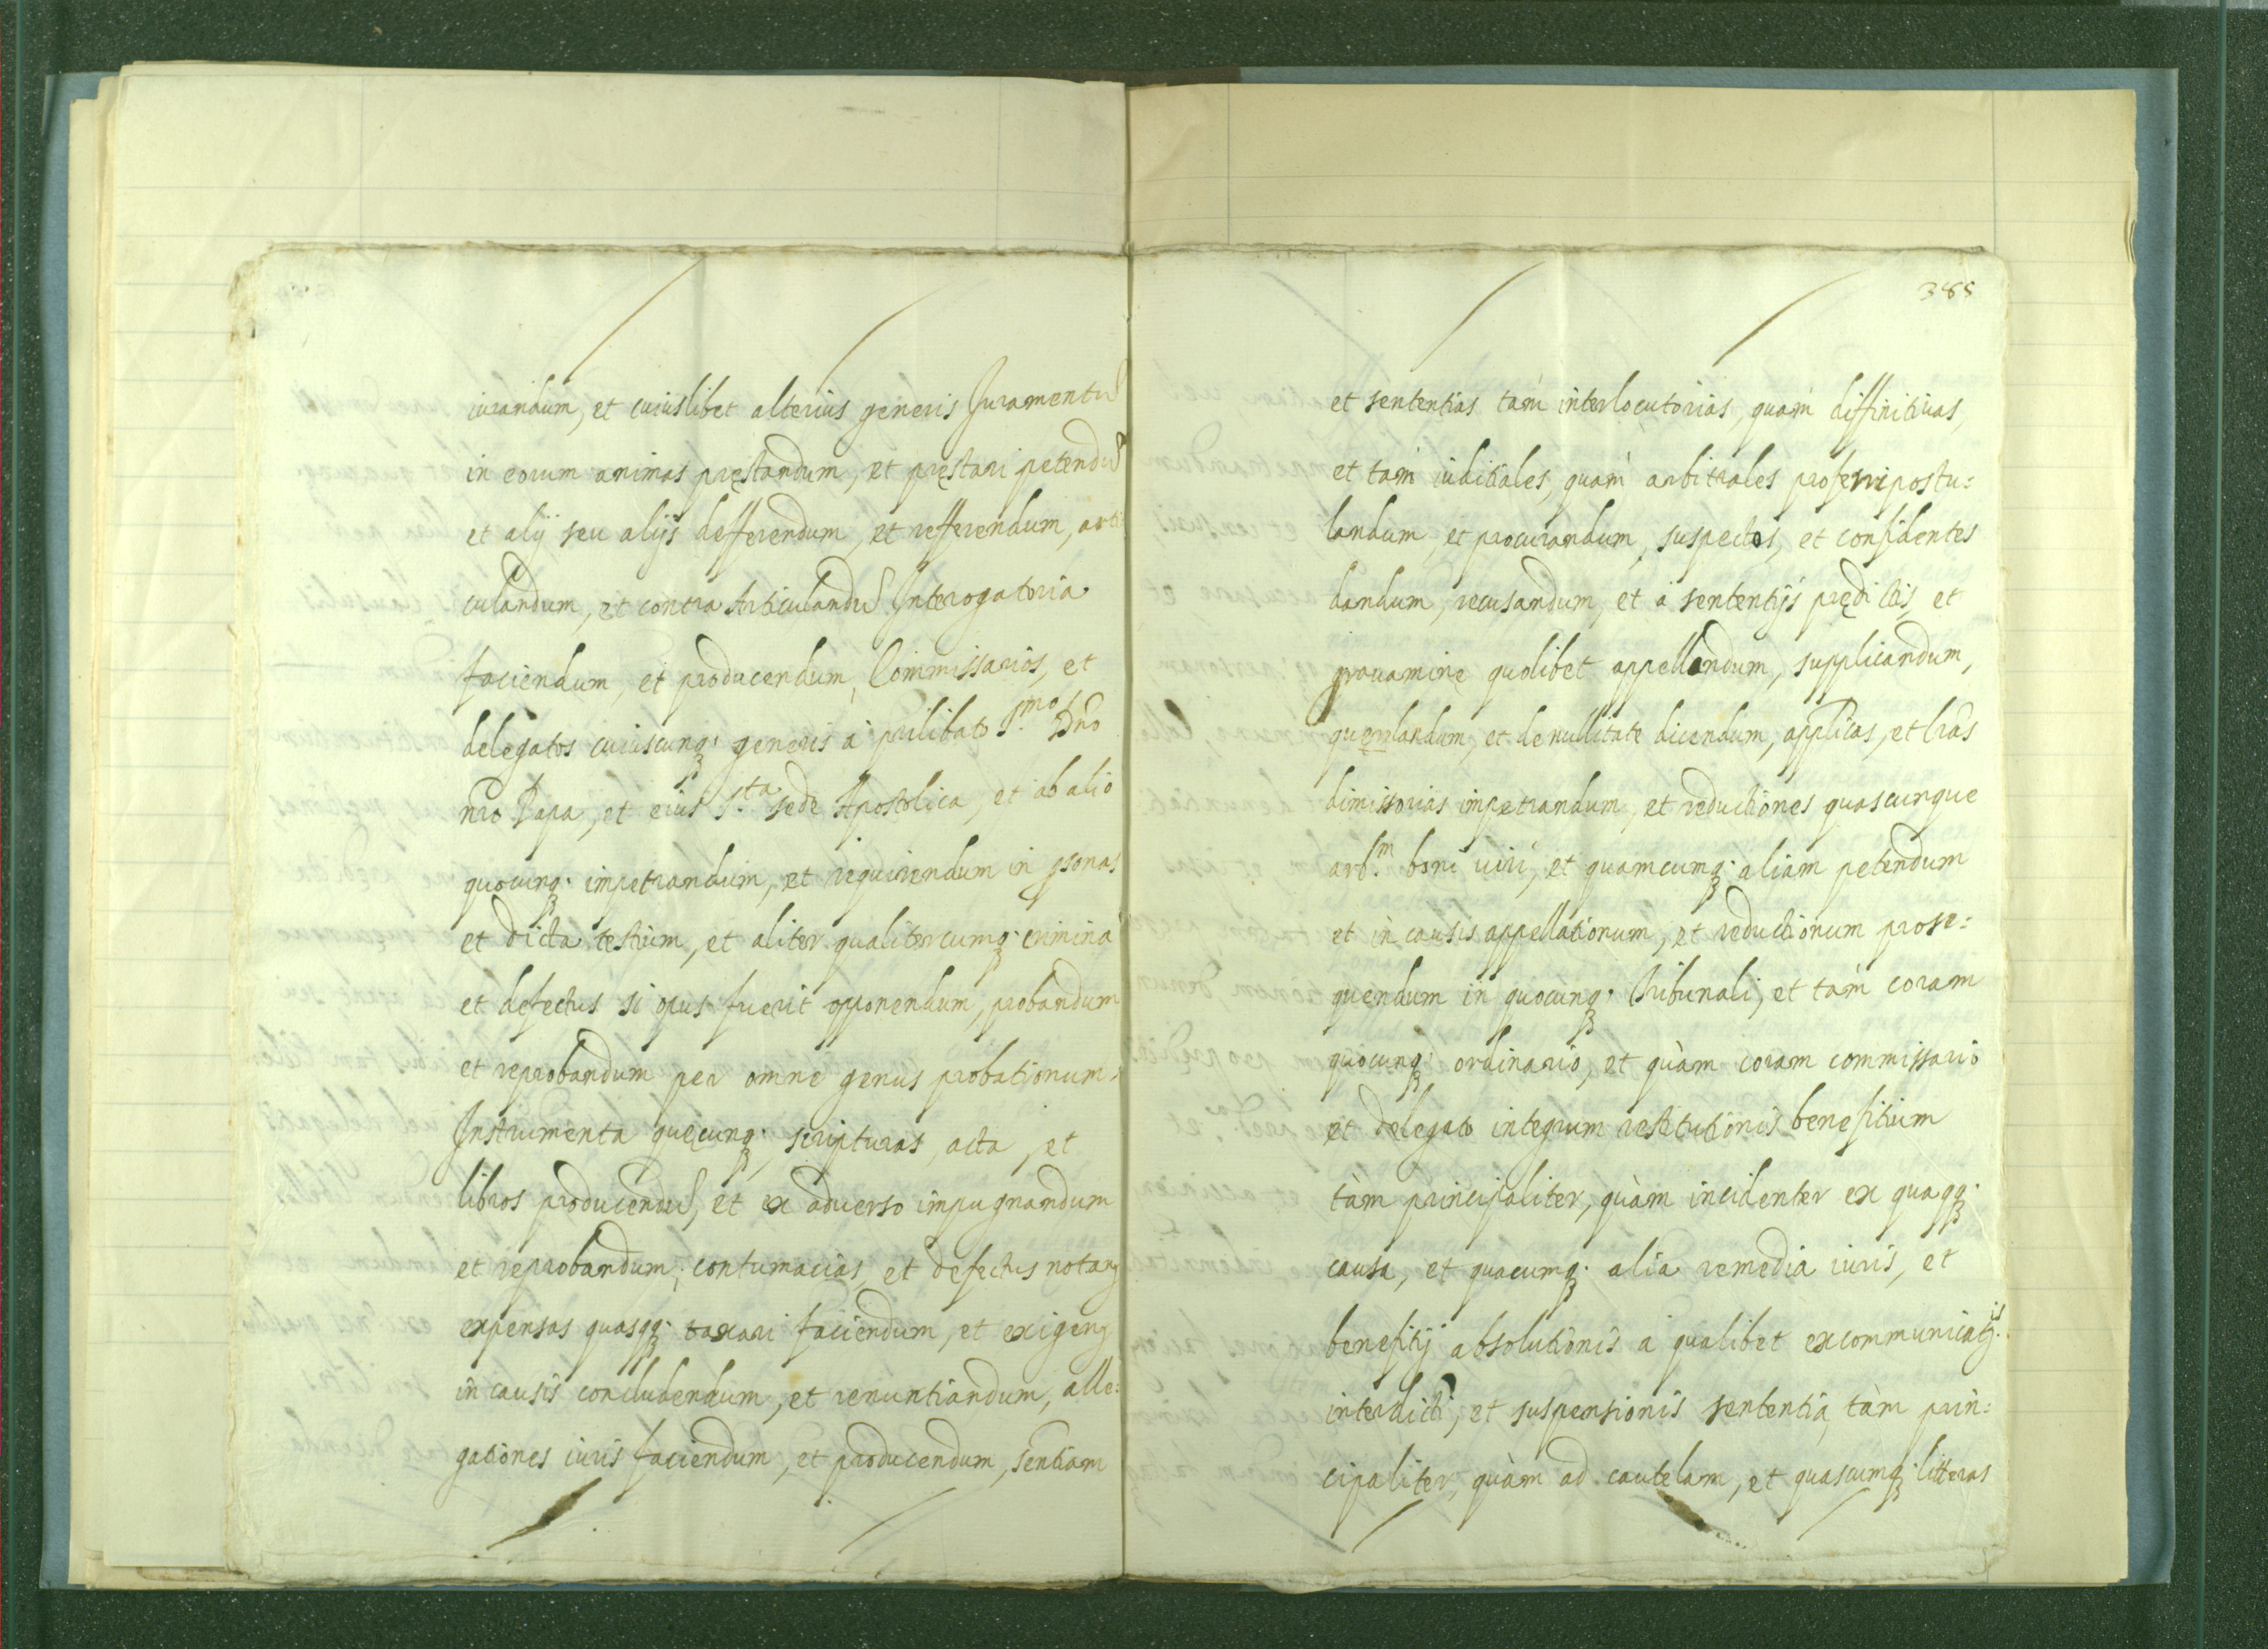 iurandum, et cuiuslibet alterius generis Juramentũ
in eorum animas pręstandum, et pręstari petendũ
et alij seu alijs defferendum, et refferendum, arti
culandum, et contra Articulandũ Interogatoria
faciendum, et producendum, Commissarios, et
delegatos cuiuscunq; generis à prilibato S.mo Dno
nro Papa, et eius S.ta sede Apostolica, et ab alio
quocunq; impetrandum, et requirendum in psonas
et dicta testium, et aliter qualitercumq; crimina
et defectus si opus fuerit opponendum, probandum
et reprobandum per omne genus probationum,
Instrumenta quęcunq; scripturas, acta, et
libros producendũ, et ex aduerso impugnandum
et reprobandum; contumacias, et defectus notang
expensas quasqq; taxari faciendum, et exigeng
in causis concludendum, et renuntiandum, alle:
gationes iuris faciendum, et producendum, sentiam
385
et sententias tàm interlocutorias, quàm diffinitiuas,
et tàm iuditiales, quàm arbitrales proferri postu:
landum, et procurandum, suspectos, et confidentes
dandum, recusandum, et à sententijs prędictis, et
grauamine quolibet appellandum, supplicandum,
querelandum, et de nullitate dicendum, applicas, et lras
dimissorias impetrandum, et reductiones quascunque
arb.m boni uiri, et quamcumq; aliam petendum
et in causis appellationum, et reductionum prose:
quendum in quocunq; Tribunali, et tàm coram
quocunq; ordinario, et quàm coram commissario
et delegato integrum restitutionis benefitium
tàm principaliter, quàm incidenter ex quaqq;
causa, et quacumq; alia remedia iuris, et
benefitij absolutionis à qualibet excommunicatis
interdicti, et suspensionis sententia, tàm prin:
cipaliter, quàm ad cautelam, et quascumq; litteras